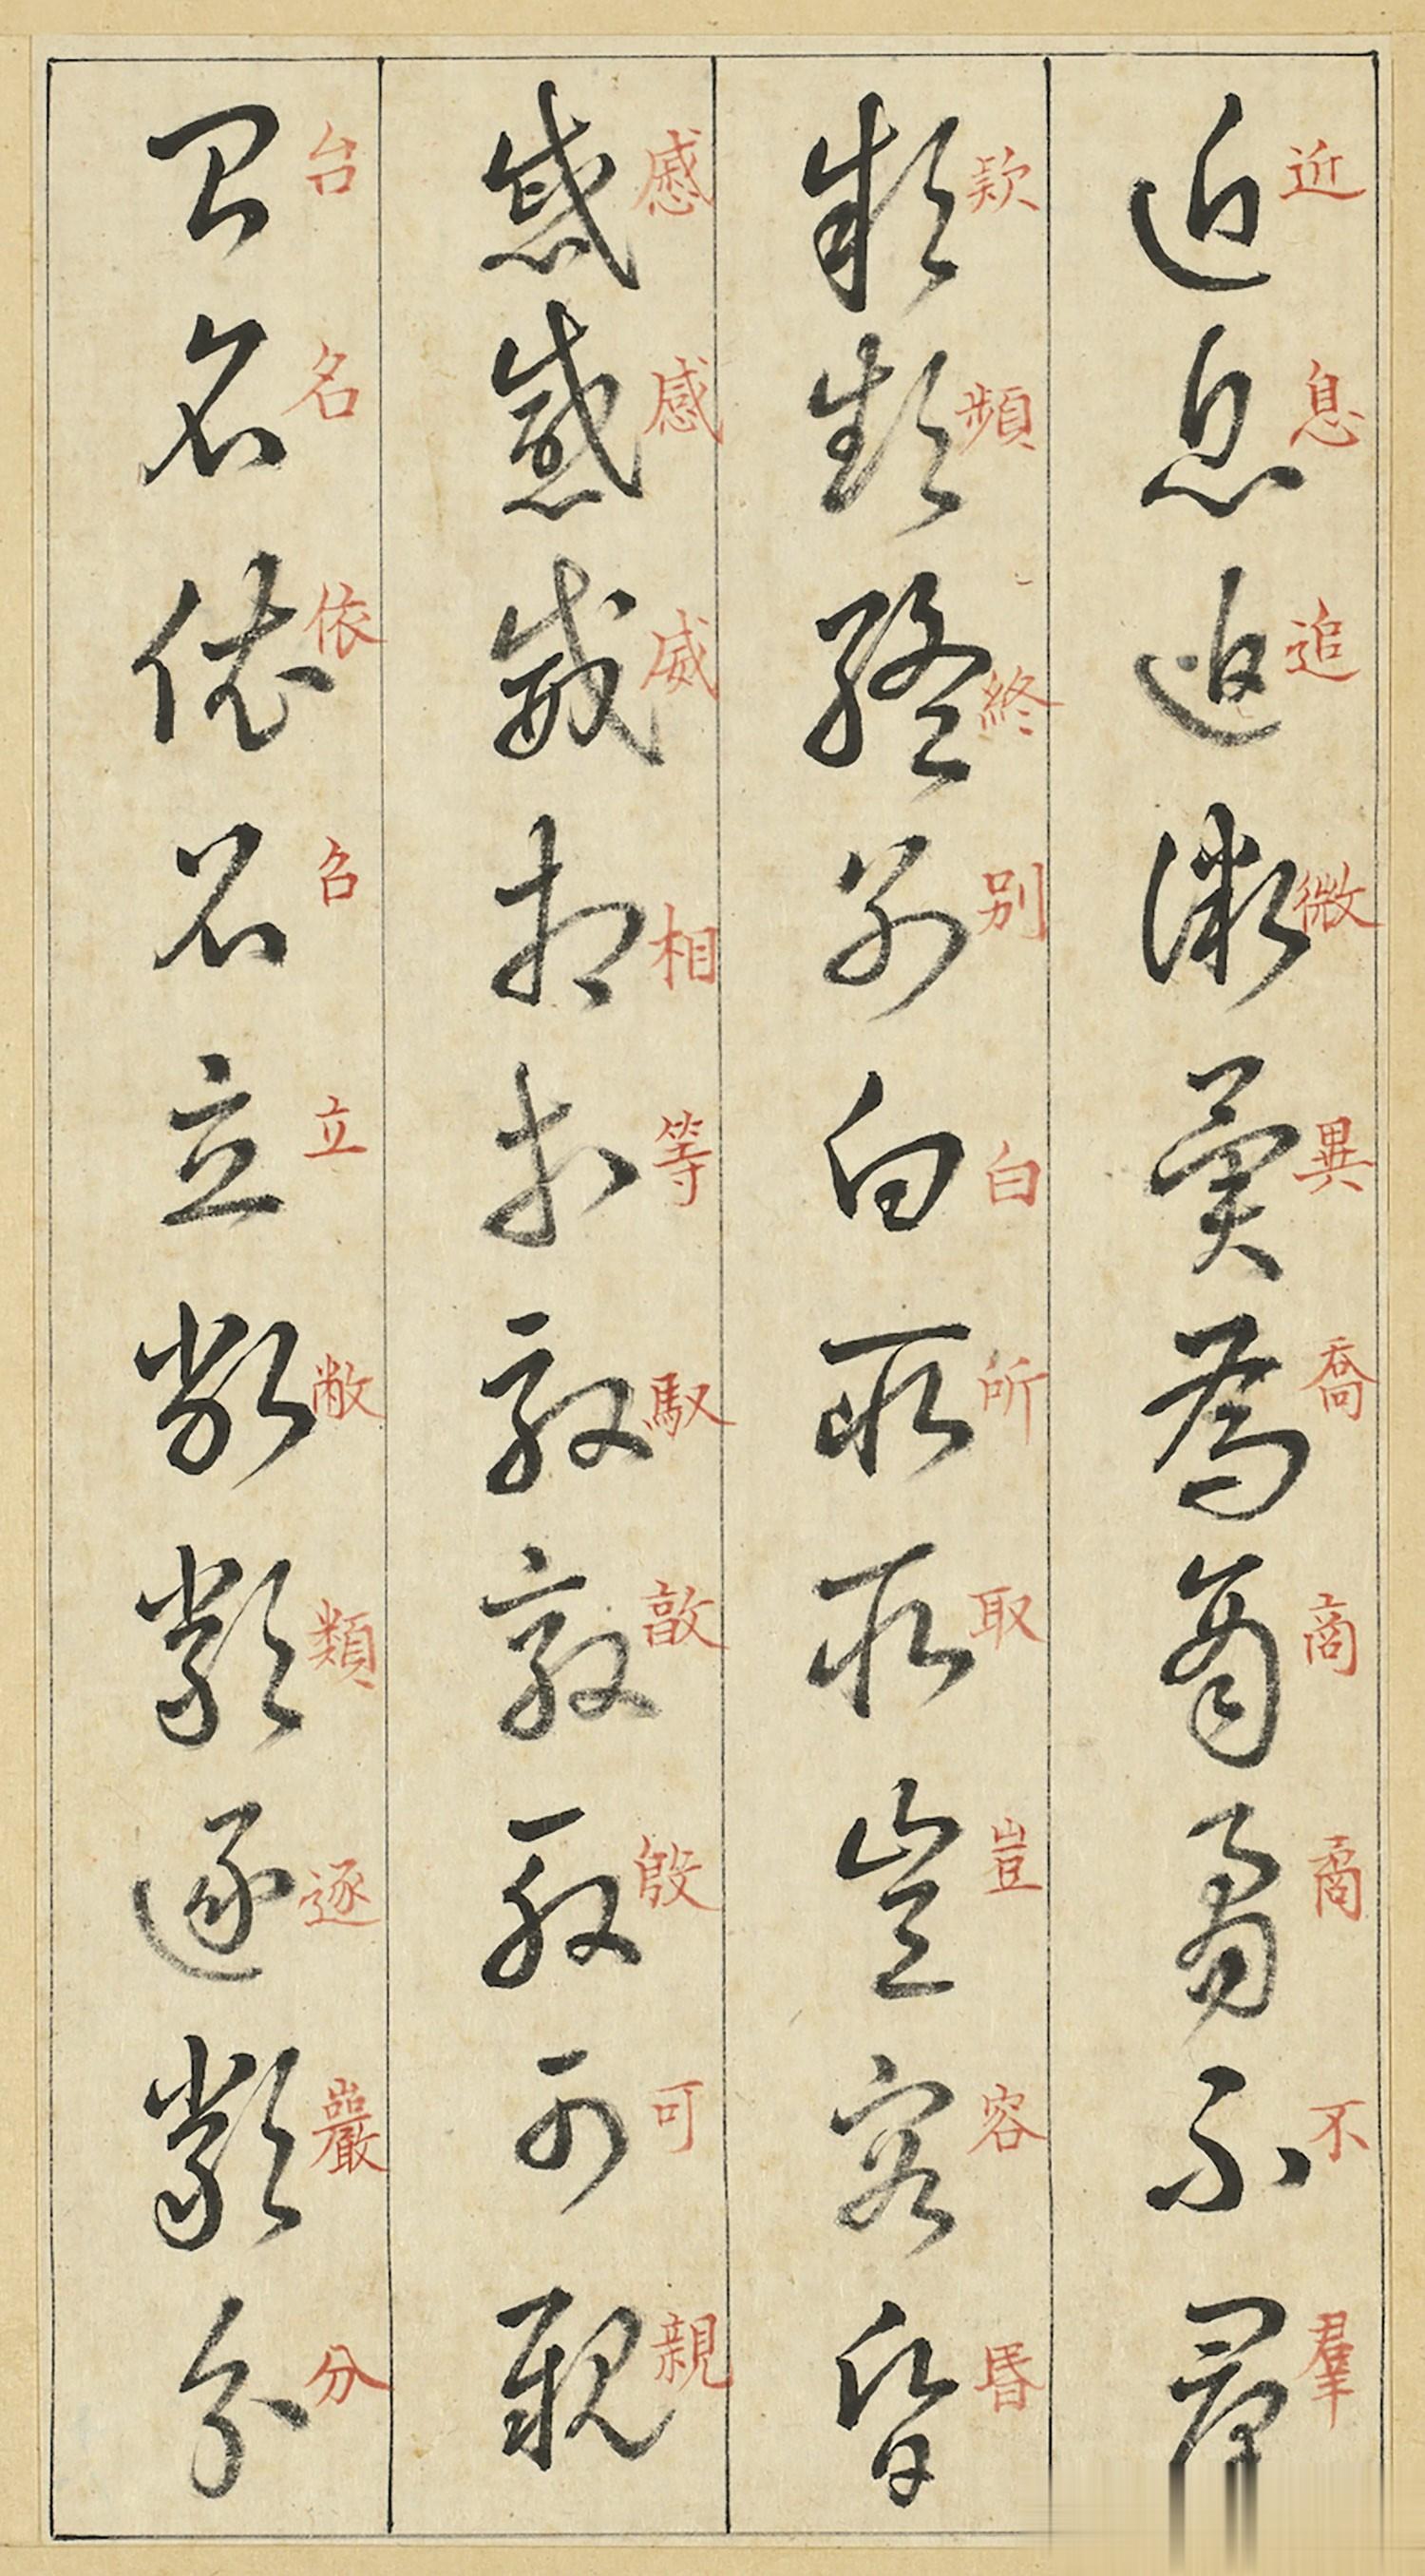 近息追微異喬商矞不羣
欵頻終別白所取豈容昏
慼感威相等馭敦殷可親
台名依召立敝類逐嚴分